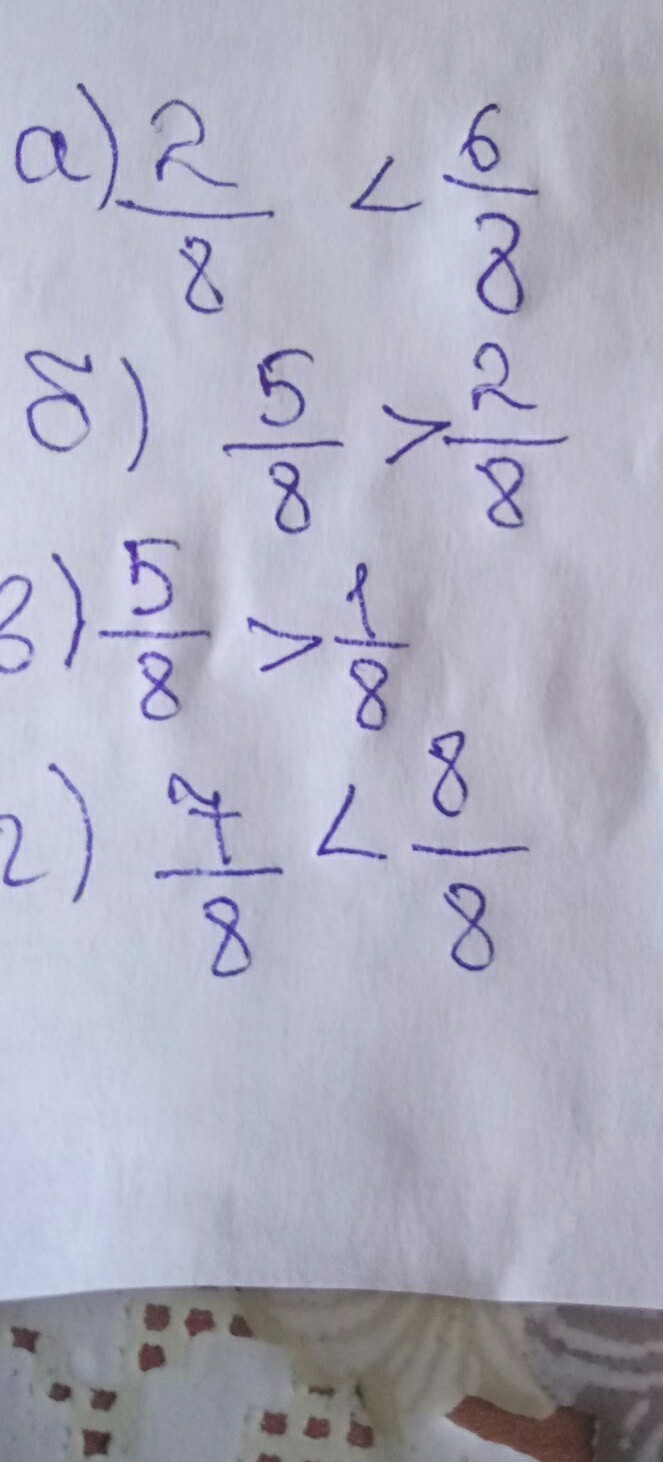 а) 2/8 < 6/8
б) 5/8 > 2/8
в) 5/8 > 1/8
г) 7/8 < 8/8